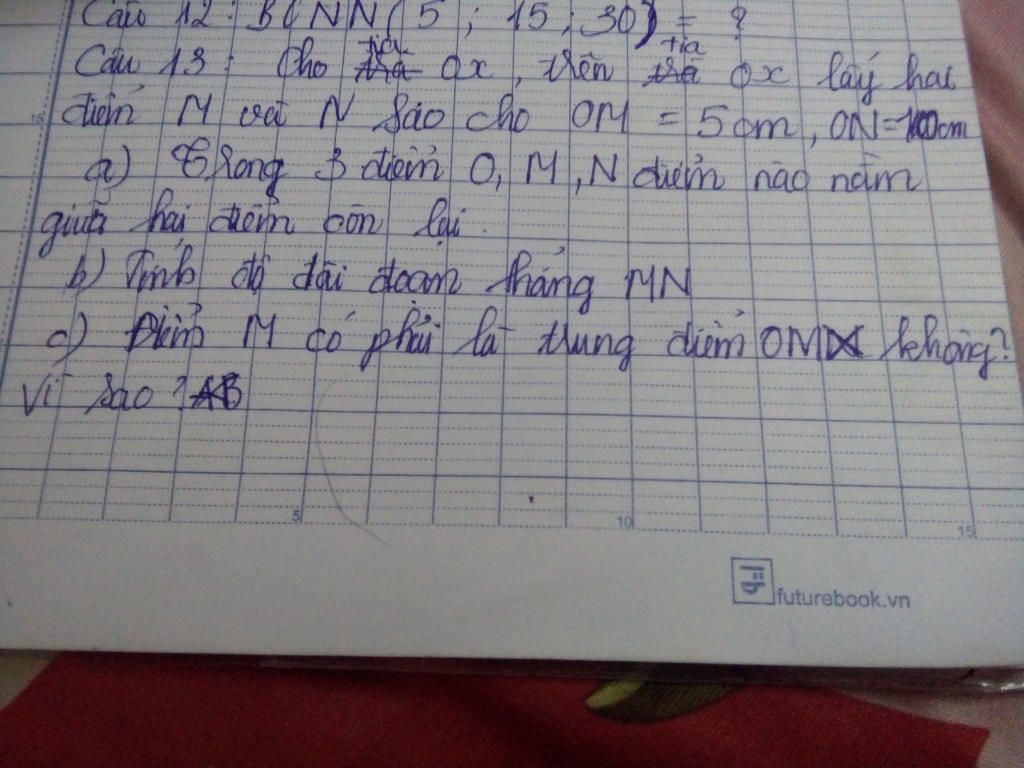 Câu 12: BCNN(5 ; 15 ; 30) = ?
Câu 13: Cho tia Ox, trên tia Ox lấy hai
điểm M và N sao cho OM = 5cm, ON=10cm
a) Trong 3 điểm O, M, N điểm nào nằm
giữa hai điểm còn lại.
b) Tính độ dài đoạn thẳng MN
c) Điểm M có phải là trung điểm OM không?
Vì sao?
5 10 15
futurebook.vn